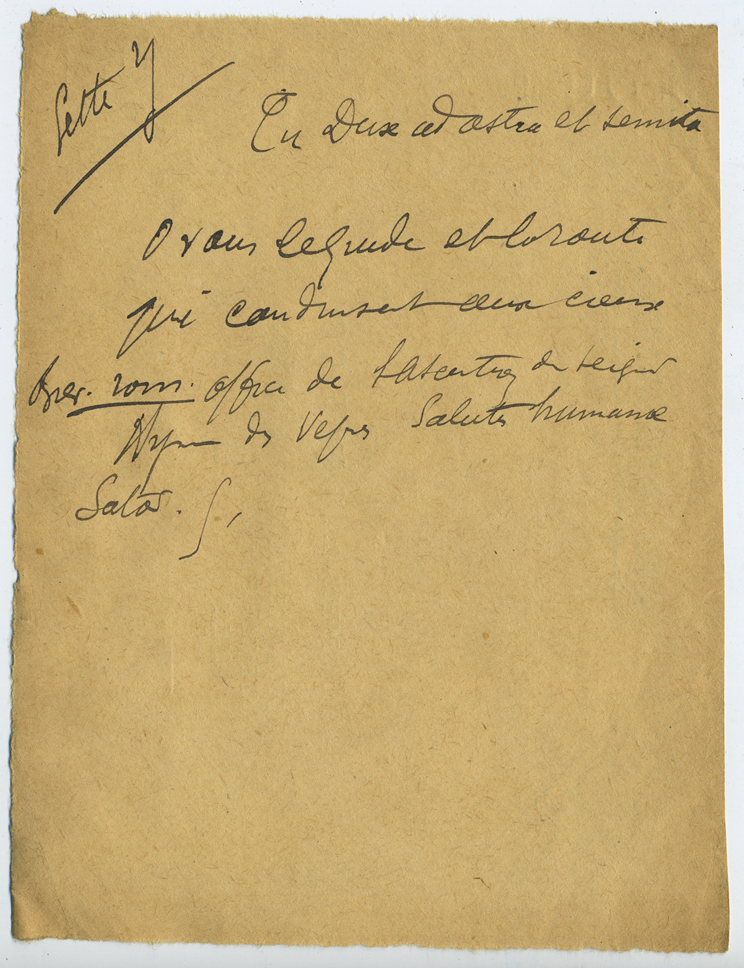 Lettre Y
Tu Dux ad astra et semita
O vous le guide et la route
qui conduisent aux cieux
Brev. rom. office de l'Ascension du Seigneur
Hymne des Vêpres Salutis humanae
Sator.